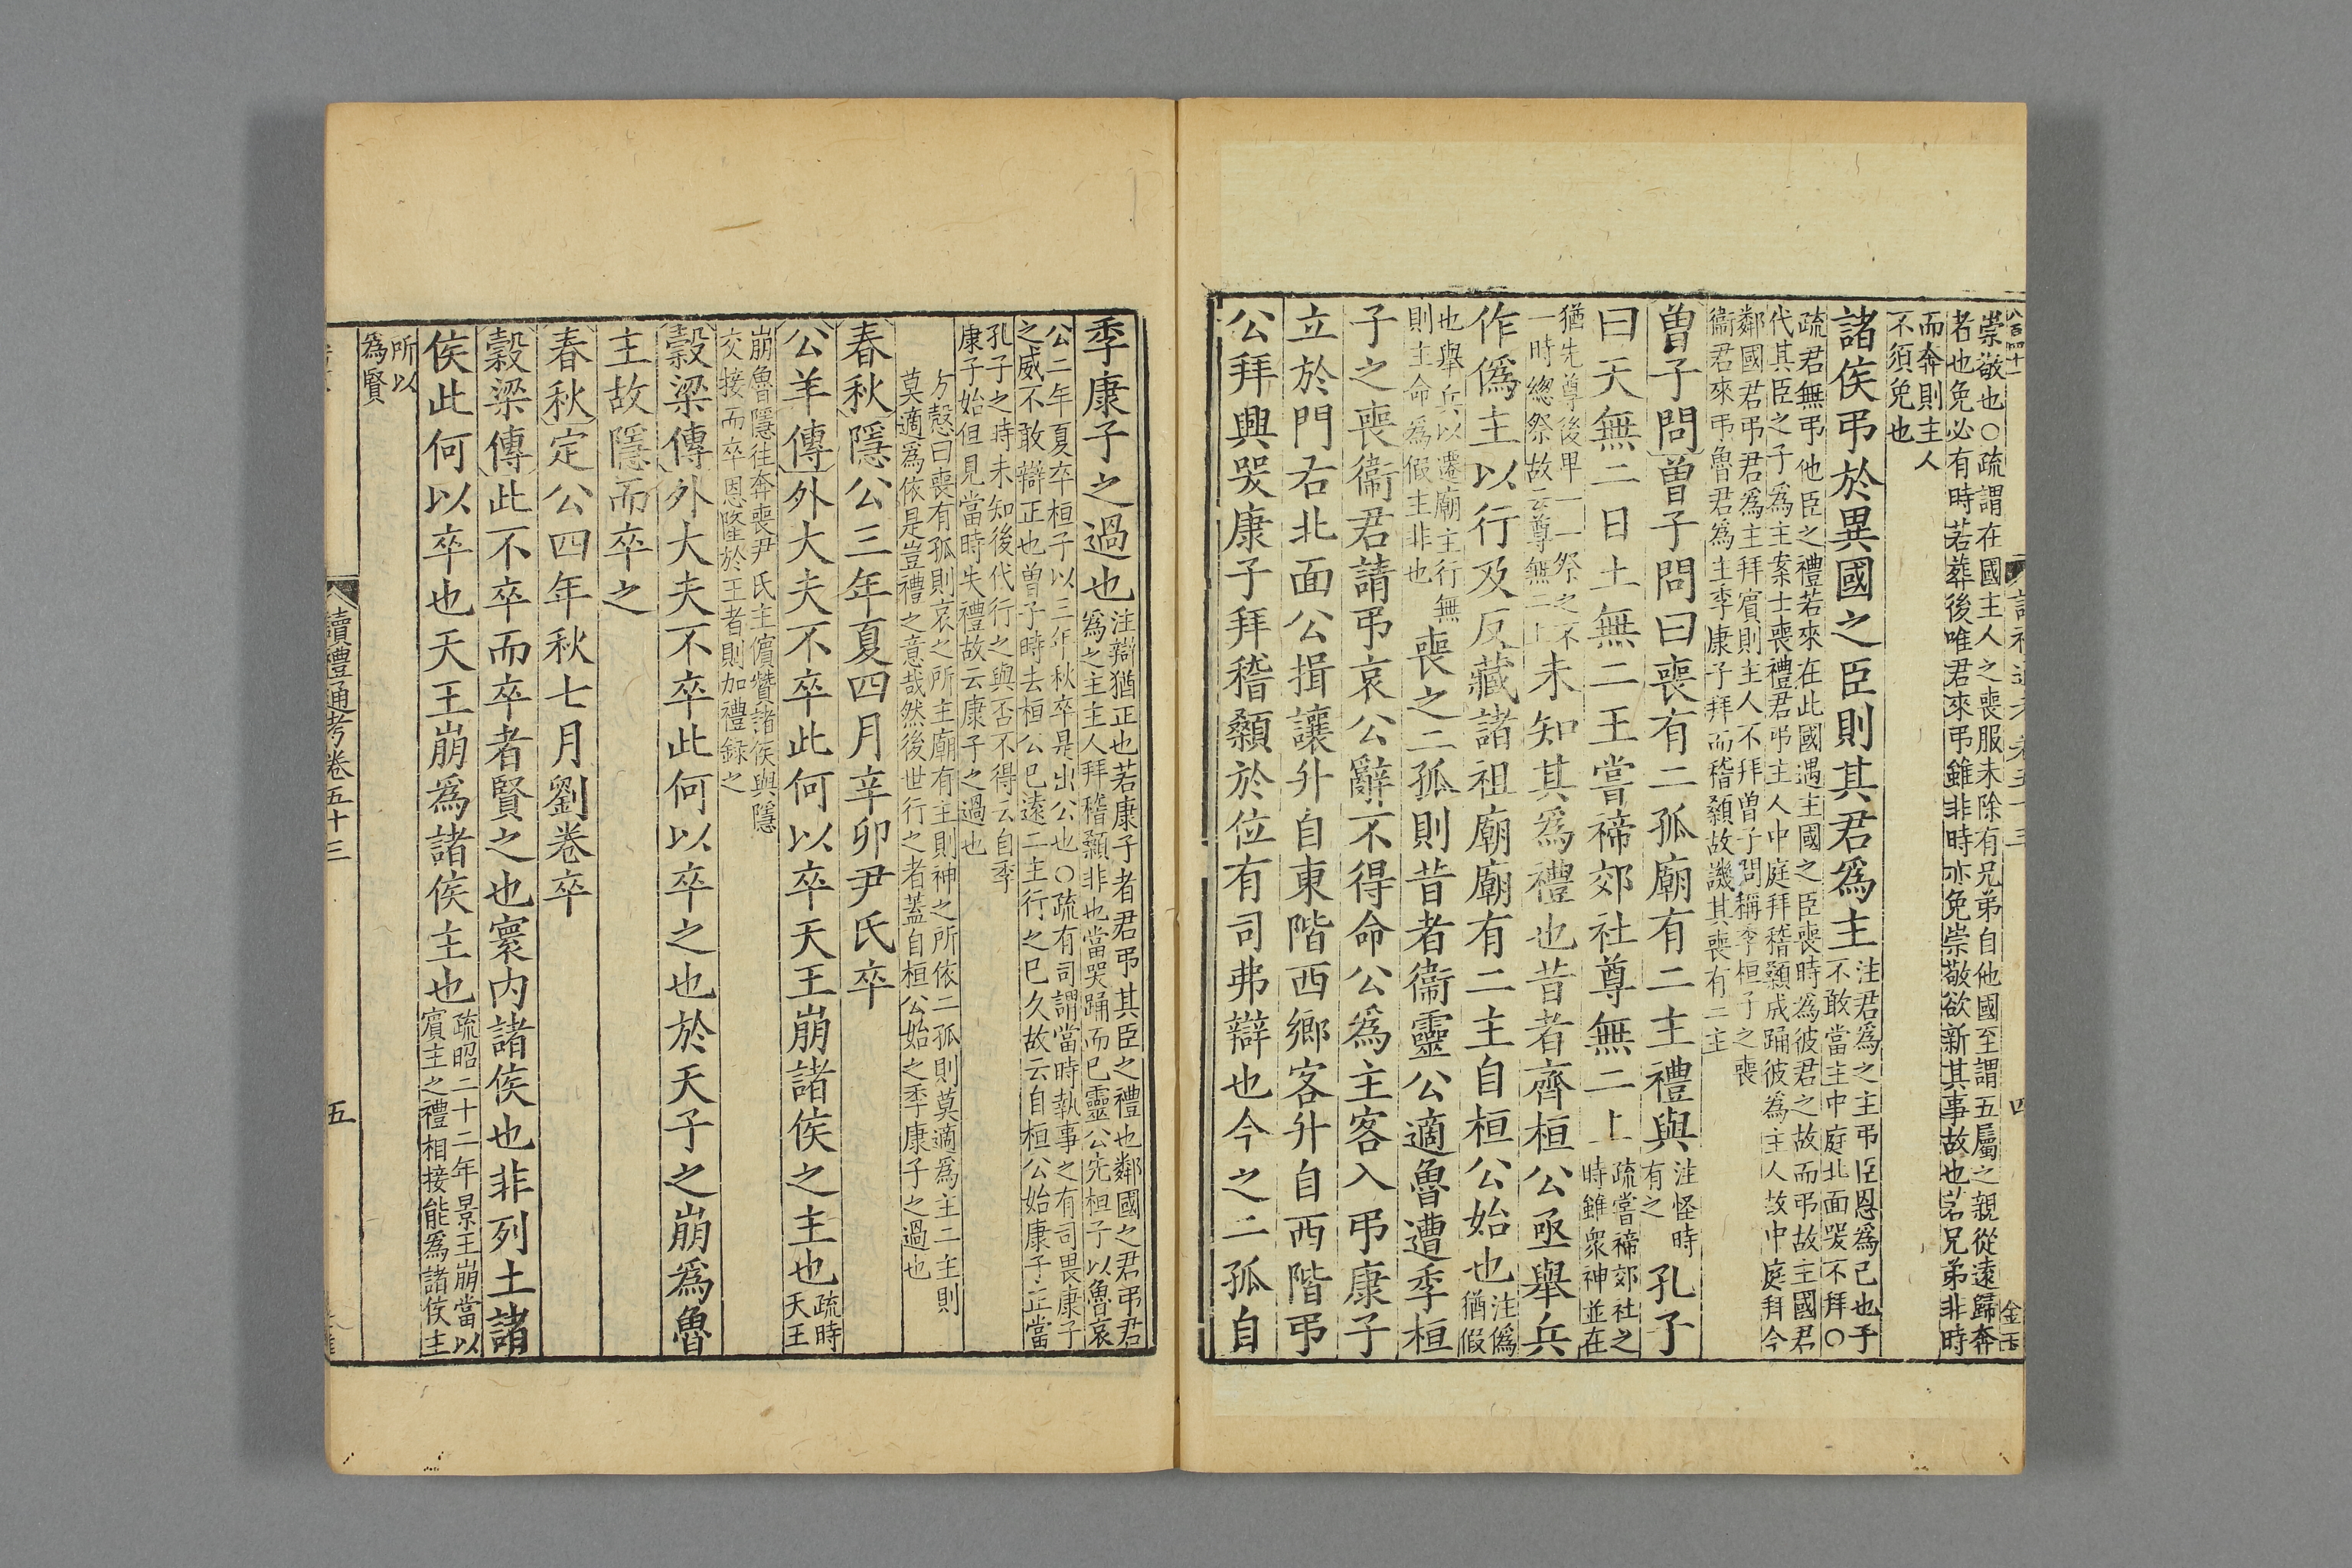 崇敬也○疏謂在國主人之喪服未除有兄弟自他國至謂五屬之親從遠歸奔
者也免必有時若葬後唯君來弔雖非時亦免崇敬欲新其事故也若兄弟非時
而奔則主人
不須免也
諸侯弔於異國之臣則其君爲主
注君爲之主弔臣恩爲己也子
不敢當主中庭北面哭不拜○
疏君無弔他臣之禮若來在此國遇主國之臣喪時爲彼君之故而弔故主國君
代其臣之子爲主案士喪禮君弔主人中庭拜稽顙成踊彼爲主人故中庭拜今
鄰國君弔君爲主拜賓則主人不拜曾子問稱季桓子之喪
衞君來弔魯君爲主季康子拜而稽顙故譏其喪有二主
曾子問曾子問曰喪有二孤廟有二主禮與
注怪時
有之
孔子
曰天無二日土無二王嘗禘郊社尊無二上
疏嘗禘郊社之
時雖衆神並在
猶先尊後卑一一祭之不
一時總祭故云尊無二上
未知其爲禮也昔者齊桓公亟舉兵
作僞主以行及反藏諸祖廟廟有二主自桓公始也
注僞
猶假
也舉兵以遷廟主行無
則主命爲假主非也
喪之二孤則昔者衞靈公適魯遭季桓
子之喪衞君請弔哀公辭不得命公爲主客入弔康子
立於門右北面公揖讓升自東階西鄉客升自西階弔
公拜興哭康子拜稽顙於位有司弗辯也今之二孤自
四
金玉
季康子之過也
注辯猶正也若康子者君弔其臣之禮也鄰國之君弔君
爲之主主人拜稽顙非也當哭踊而已靈公先桓子以魯哀
公二年夏卒桓子以三年秋卒是出公也○疏有司謂當時執事之有司畏康子
之威不敢辯正也曾子時去桓公已遠二主行之已久故云自桓公始康子正當
孔子之時未知後代行之與否不得云自季
康子始但見當時失禮故云康子之過也
方慤曰喪有孤則哀之所主廟有主則神之所依二孤則莫適爲主二主則
莫適爲依是豈禮之意哉然後世行之者蓋自桓公始之季康子之過也
春秋隱公三年夏四月辛卯尹氏卒
公羊傳外大夫不卒此何以卒天王崩諸侯之主也
疏時
天王
崩魯隱往奔喪尹氏主儐贊諸侯與隱
交接而卒恩隆於王者則加禮錄之
穀梁傳外大夫不卒此何以卒之也於天子之崩爲魯
主故隱而卒之
春秋定公四年秋七月劉卷卒
穀梁傳此不卒而卒者賢之也寰內諸侯也非列土諸
侯此何以卒也天王崩爲諸侯主也
疏昭二十二年景王崩當以
賓主之禮相接能爲諸侯主
所以
爲賢
讀禮通考卷五十三
五